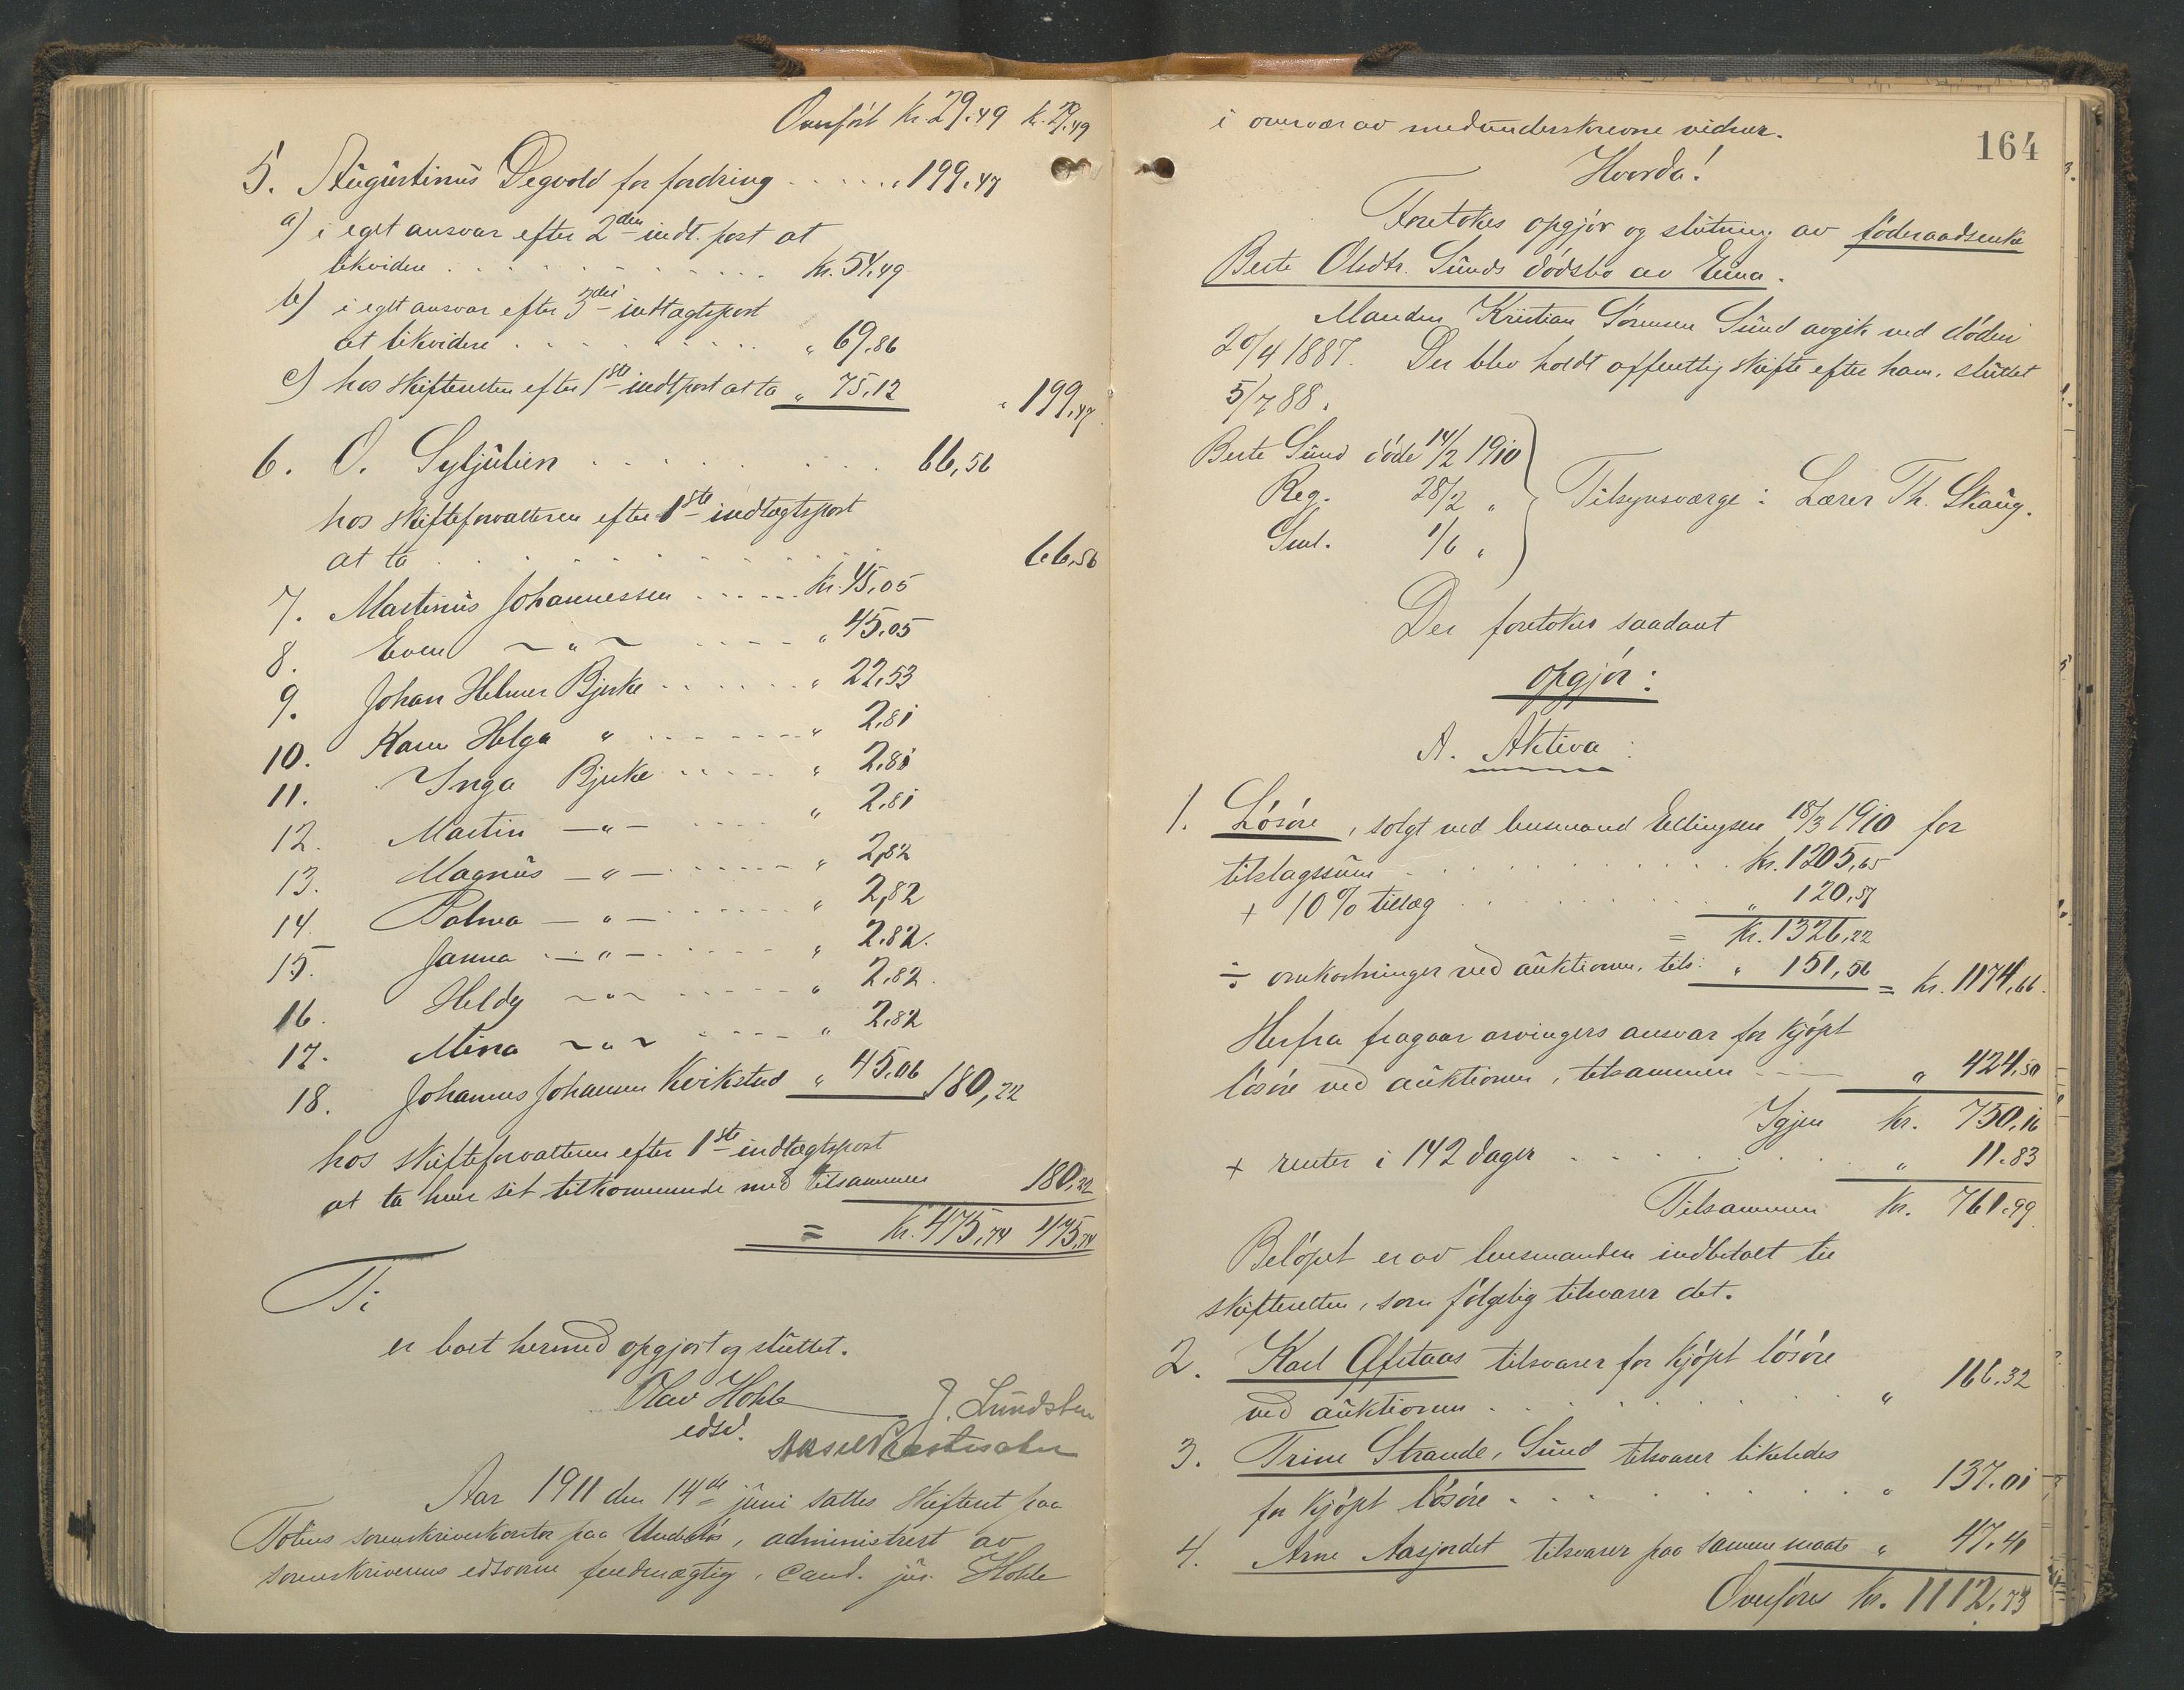 Overført kr. 29,49 kr. 29,49
5. Augustinus Degvold for fordring . . . . . „ 199,47
a) i eget ansvar efter 2den indt. post at
likvidere . . . . . . . . . . kr. 54,49
b) i eget ansvar efter 3die indtægtspost
at likvidere . . . . . . . . . „ 69,86
c) hos skifteretten efter 1ste indtpost at ta „ 75,12
„ 199,47
6. O. Syljulien . . . . . . . . . . 66,56
hos skifteforvalteren efter 1ste indtægtspost
at ta . . . . . . . . . 66,56
7. Martinus Johannessen . . . . . kr. 45,05
8. Even — „ — . . . . „ 45,05
9. Johan Helmer Bjerke . . . . . . „ 22,53
10. Karen Helga „ . . . . . . „ 2,81
11. Inga Bjerke . . . . . „ 2,81
12. Martin — „ — . . . . „ 2,81
13. Magnus — „ — . . . . . „ 2,82
14. Palma — „ — . . . . . „ 2,82
15. Janna — „ — . . . . „ 2,82.
16. Heldy — „ — . . . . . „ 2,82.
17. Mina — „ — . . . . „ 2,82
18. Johannes Johansen Kvikstad „ 45,06 180,22
hos skifteforvalteren efter 1ste indtægtspost
at ta hver sit tilkommende med tilsammen 180,22
= kr. 475,74 475,74
Ti
er boet hermed opgjort og sluttet.
Olav Hohle J. Lundsten
edsv. Aksel
Aar 1911 den 14de juni sattes skifteret paa
Totens sorenskriverkontor paa , administrert av
sorenskriverens edsvorne fuldmægtig, cand. jur. Hohle
164
i overvær av medunderskrevne vidner.
Hvorda!
Foretokes opgjør og slutning av føderaadsenke
Berte Olsdtr. Sunds dødsbo av Eina.
Manden Kristian Sørensen Sund avgik ved døden
20/4 1887. Der blev holdt offentlig skifte efter ham, sluttet
5/7 88.
Berte Sund døde 14/2 1910
Reg. 28/2 „ Tilsynsværge: Lærer Th. Skaug.
Sml. 1/6 „
Der foretokes saadant
opgjør:
A. Aktiva:
1. Løsøre, solgt ved lensmand Ellingsen 18/3 1910 for
tilslagssum . . . . . . . . . . kr. 1205,65
+ 10% tillæg . . . . . . . . . „ 120,57
= kr. 1326,22
÷ omkostninger ved auktionen, tils: „ 151,56 = kr. 1174,66.
Herfra fragaar arvingers ansvar for kjøpt
løsøre ved auktionen, tilsammen . . . „ 424,50
Igjen kr. 750,16
+ renter i 142 dager . . . . . . . „ 11,83
Tilsammen kr. 761,99
Beløpet er av lensmanden indbetalt til
skifteretten, som følgelig tilsvarer det.
2. Karl Øfstaas tilsvarer for kjøpt løsøre
ved auktionen . . . . . . . . „ 166,32
3. Trine Strande, Sund tilsvarer likeledes
for kjøpt løsøre . . . . . . . . „ 137,01
4. Arne Aasjordet tilsvarer paa samme maate „ 47,41
Overføres kr. 1112,73